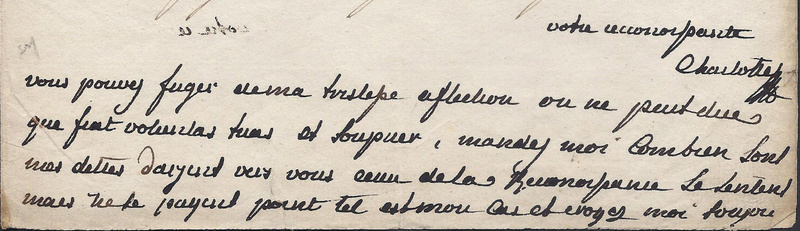 votre reconoissante
Charlotte
vous pouvez juger de ma tristesse affliction on ne peut dire
que fiat voluntas tuas et soupirer, mandez moi Combien sont
mes dettes d'argent vers vous ceux de la Reconoissance se sentent
mais ne se payent point tel est mon Cas et croyez moi toujour